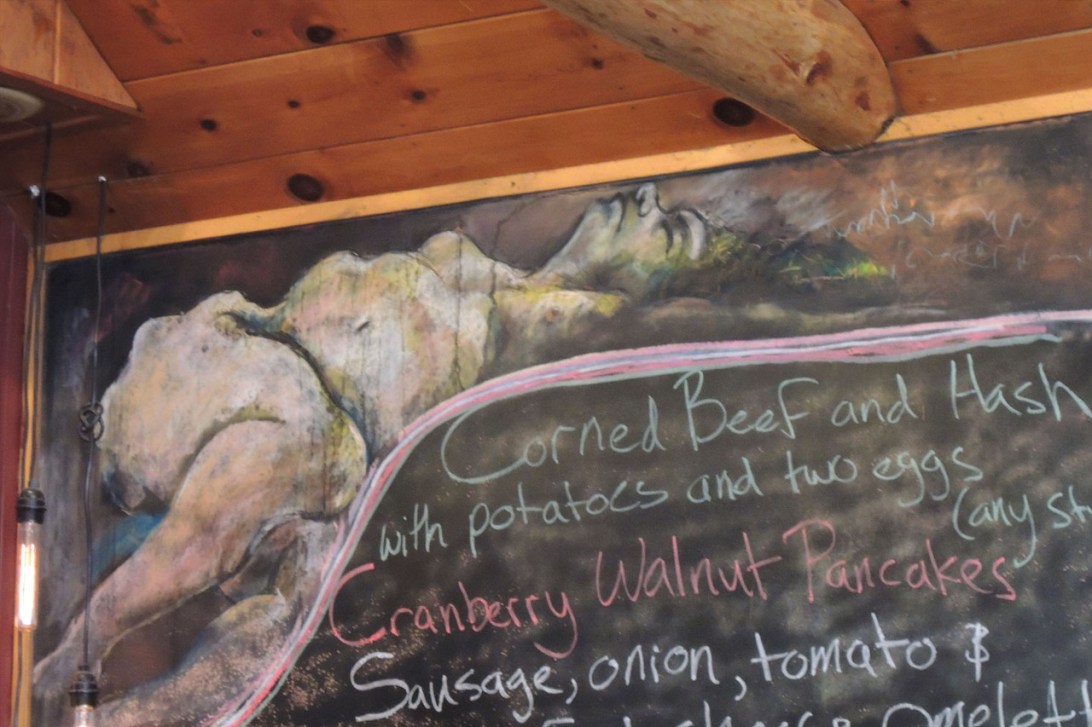 Corned Beef and Hash
with potatoes and two eggs
(any st
Cranberry Walnut Pancakes
Sausage, onion, tomato &